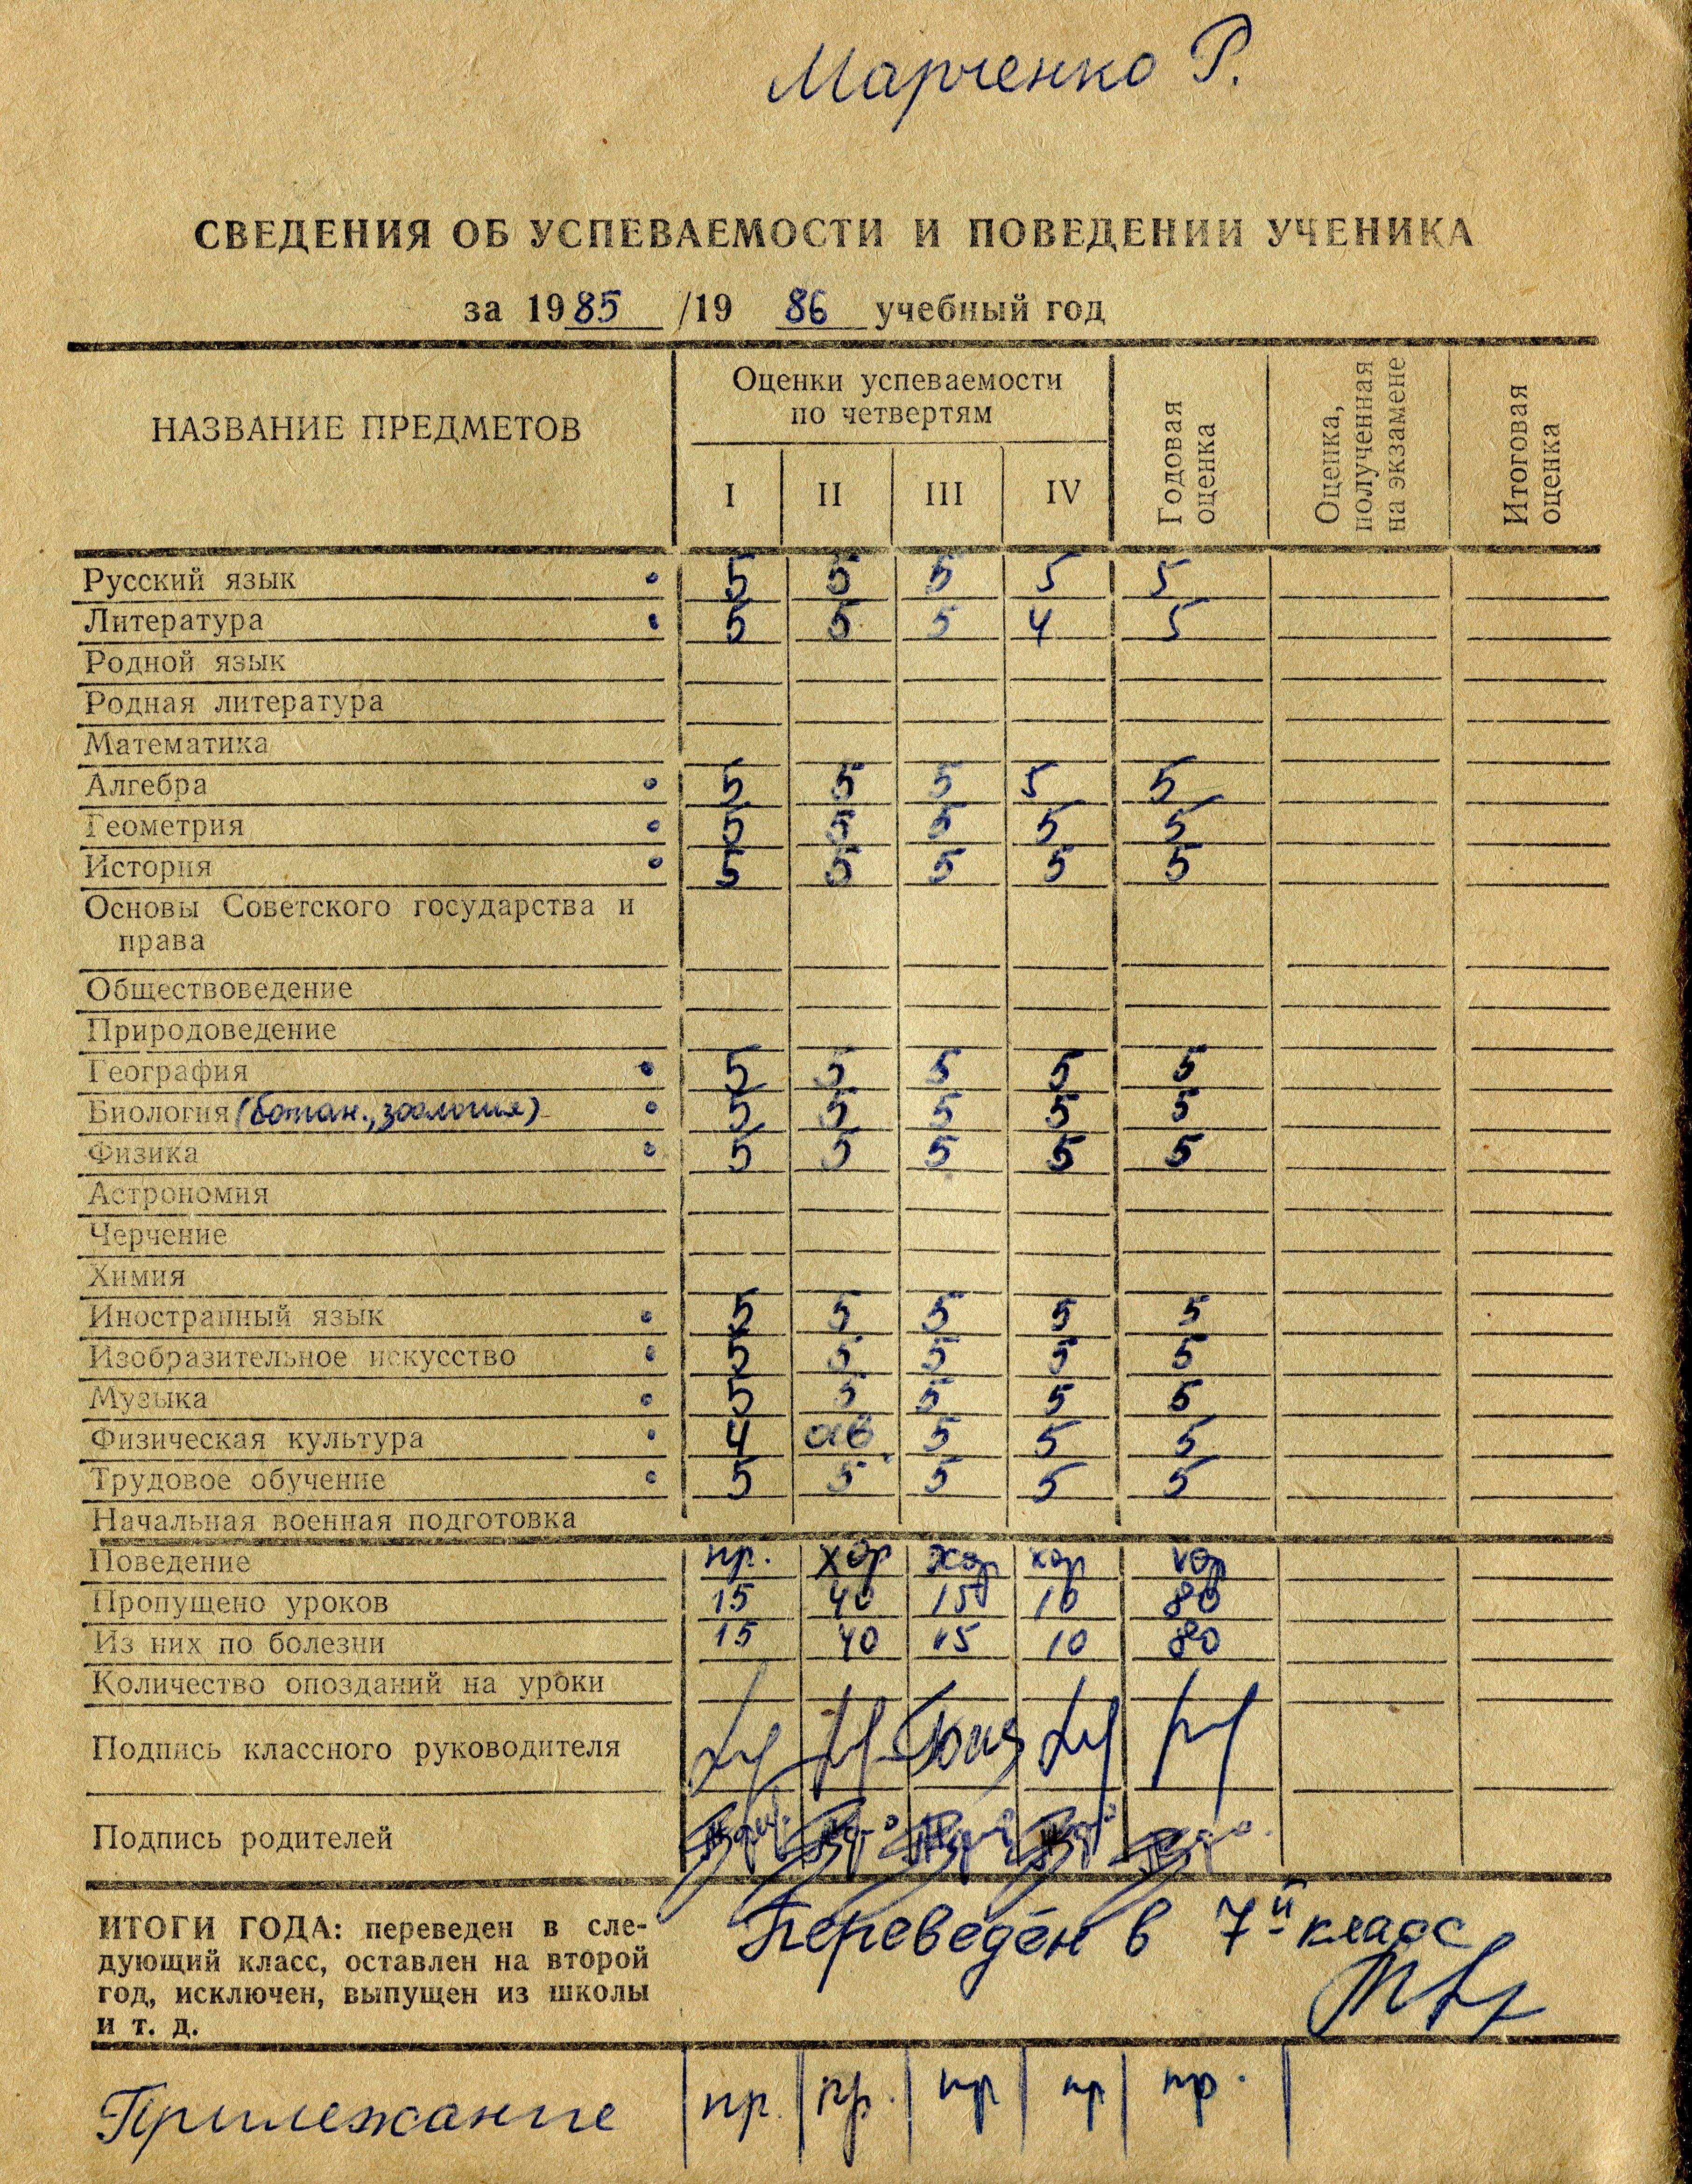 Марченко Р.
СВЕДЕНИЯ ОБ УСПЕВАЕМОСТИ И ПОВЕДЕНИИ УЧЕНИКА
за 1985/19 86 учебный год
НАЗВАНИЕ ПРЕДМЕТОВ
Оценки успеваемости
по четвертям
I II III IV
Годовая
оценка
Оценка,
полученная
на экзамене
Итоговая
оценка
Русский язык 5 5 5 5 5
Литература 5 5 5 4 5
Родной язык
Родная литература
Математика
Алгебра 5 5 5 5 5
Геометрия 5 5 5 5 5
История 5 5 5 5 5
Основы Советского государства и
права
Обществоведение
Природоведение
География 5 5 5 5 5
Биология (ботан., зоология) 5 5 5 5 5
Физика 5 5 5 5 5
Астрономия
Черчение
Химия
Иностранный язык 5 5 5 5 5
Изобразительное искусство 5 5 5 5 5
Музыка 5 5 5 5 5
Физическая культура 4 осв. 5 5 5
Трудовое обучение 5 5 5 5 5
Начальная военная подготовка
Поведение пр. хор хор хор хор
Пропущено уроков 15 40 15 10 80
Из них по болезни 15 40 15 10 80
Количество опозданий на уроки
Подпись классного руководителя
Подпись родителей
ИТОГИ ГОДА: переведен в сле-
дующий класс, оставлен на второй
год, исключен, выпущен из школы
и т. д.
Переведён в 7й класс
Прилежание пр. пр. пр пр пр.